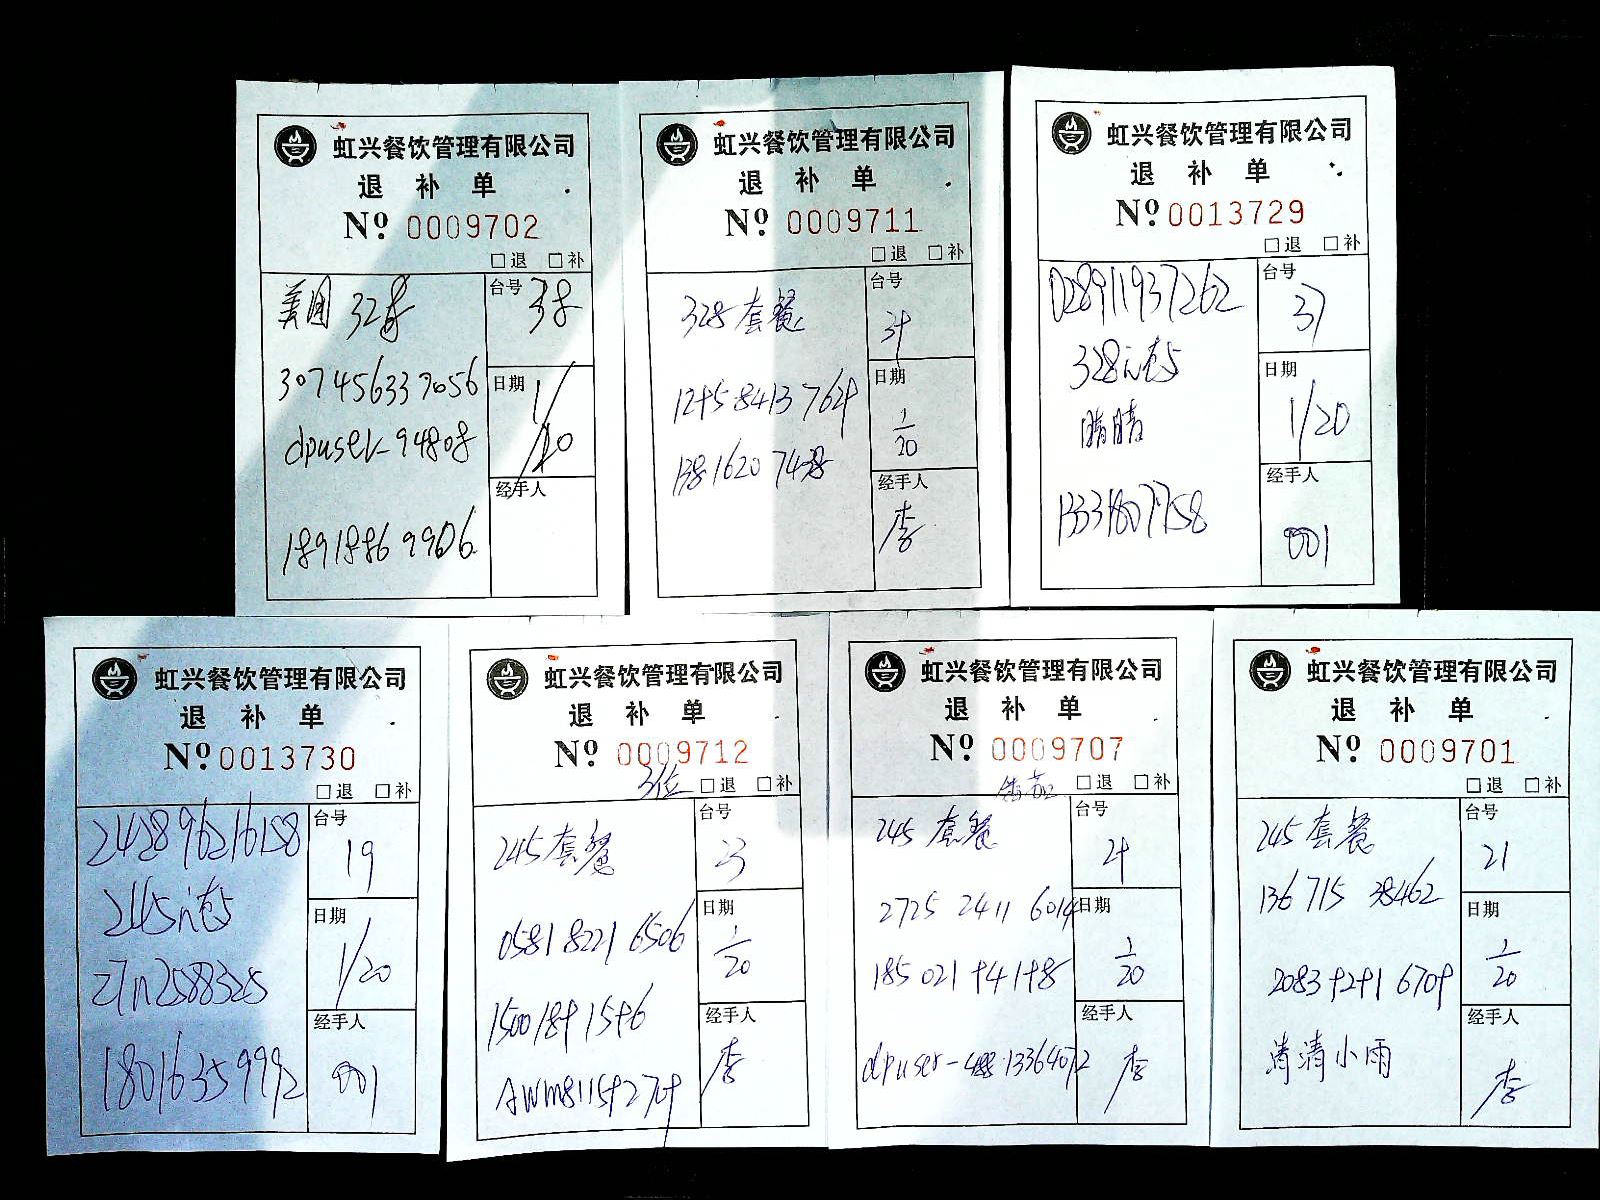 虹兴餐饮管理有限公司
退补单
No. 0009702
□退 □补
美团 328
台号
38
307456337056
日期
1/20
dpuser-94808
经手人
18918869906
虹兴餐饮管理有限公司
退补单
No. 0009711
□退 □补
328套餐
台号
日期
1/20
经手人
李
虹兴餐饮管理有限公司
退补单
No. 0013729
□退 □补
028911937262
台号
37
328元套
日期
1/20
晴晴
经手人
13331807758
001
虹兴餐饮管理有限公司
退补单
No. 0013730
□退 □补
242896216158
台号
19
245元套
日期
1/20
zTn2588325
经手人
18016359992
001
虹兴餐饮管理有限公司
退补单
No. 0009712
3位 □退 □补
245套餐
台号
23
058182216506
日期
1/20
经手人
李
虹兴餐饮管理有限公司
退补单
No. 0009707
□退 □补
245套餐
台号
2725 2411 6014
日期
1/20
经手人
李
虹兴餐饮管理有限公司
退补单
No. 0009701
□退 □补
245套餐
台号
21
136 715 38462
日期
1/20
经手人
清清小雨
李